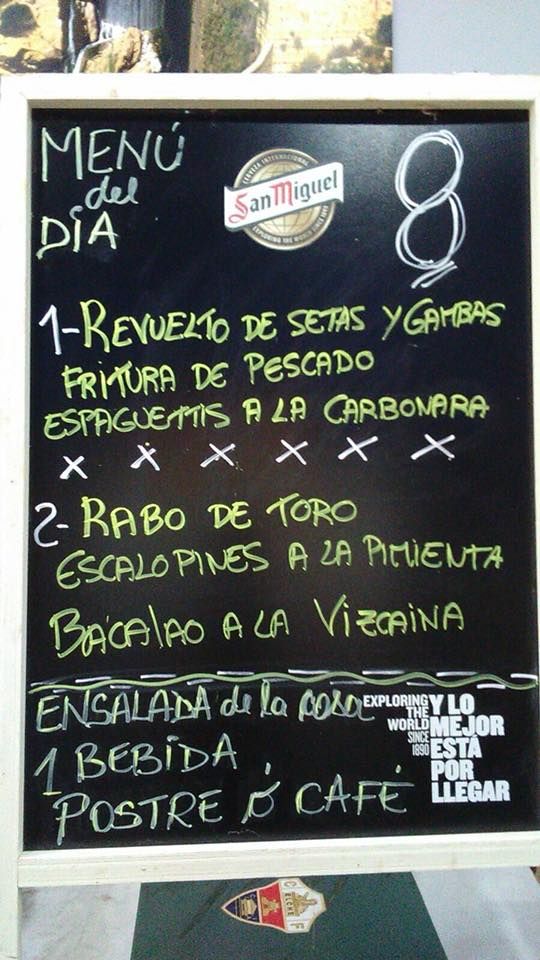 MENÚ
del
DÍA
CERVEZA INTERNACIONAL
San Miguel
EXPLORING THE WORLD SINCE 1890
8
1-REVUELTO DE SETAS Y GAMBAS
FRITURA DE PESCADO
ESPAGUETTIS A LA CARBONARA
X X X X X X
2-RABO DE TORO
ESCALOPINES A LA PIMIENTA
BACALAO A LA VIZCAINA
ENSALADA de la casa
1 BEBIDA
POSTRE Ó CAFÉ
EXPLORING
THE
WORLD
SINCE
1890
Y LO
MEJOR
ESTÁ
POR
LLEGAR
ELCHE
C F